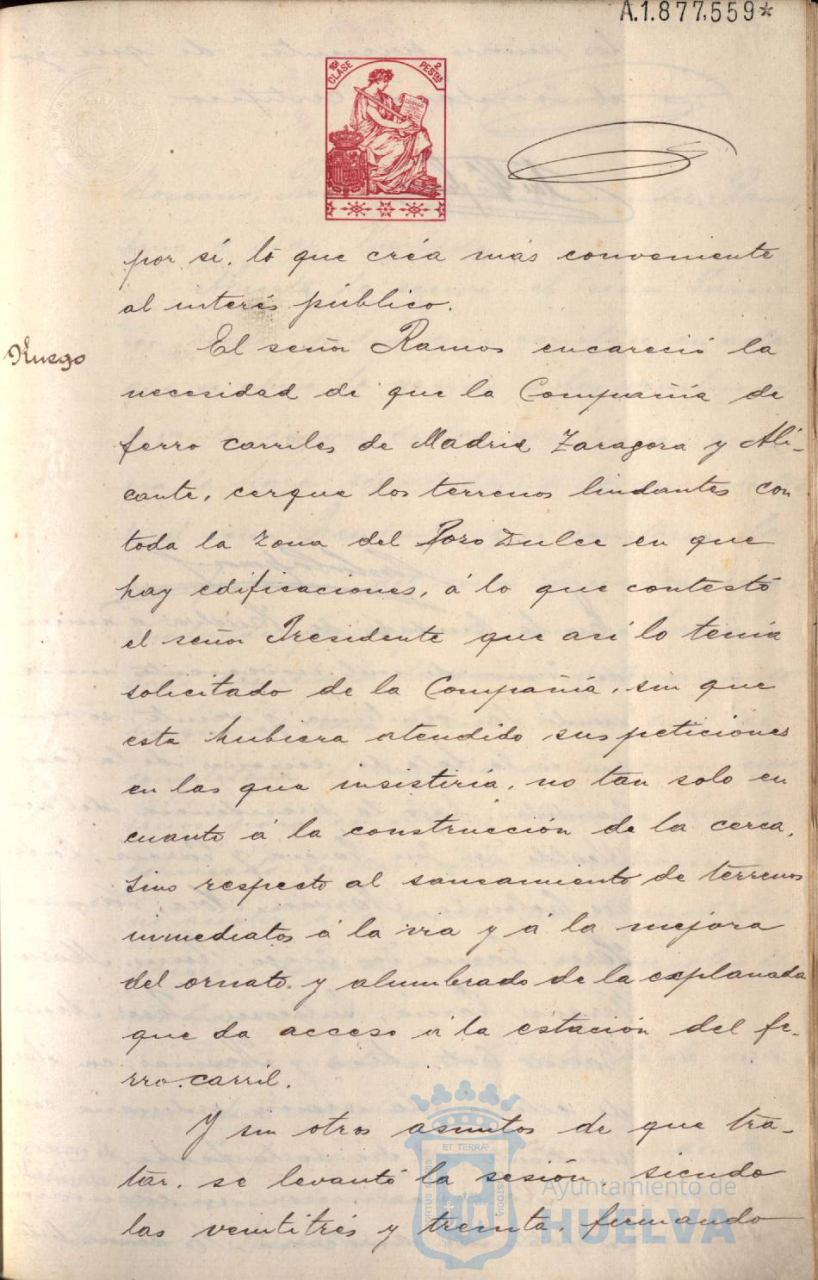 A.1.877,559*
10ª CLASE 2 PESTAS
por sí, lo que créa más conveniente
al interés público.
Ruego
El señor Ramos encareció la
necesidad de que la Compañía de
ferro carriles de Madrid Zaragora y Ali-
cante, cerque los terrenos lindantes con
toda la zona del Pozo Dulce en que
hay edificaciones, á lo que contestó
el señor Presidente que así lo tenía
solicitado de la Compañía, sin que
esta hubiera atendido sus peticiones
en las que insistiría, no tan solo en
cuanto á la construcción de la cerca,
sino respecto al saneamiento de terrenos
inmediatos á la via y á la mejora
del ornato y alumbrado de la explanada
que da acceso á la estación del fe-
rro-carril.
Y sin otros asuntos de que tra-
tar, se levantó la sesión siendo
las veintitrés y treinta, firmando
ET TERRÆ
Ayuntamiento de
HUELVA